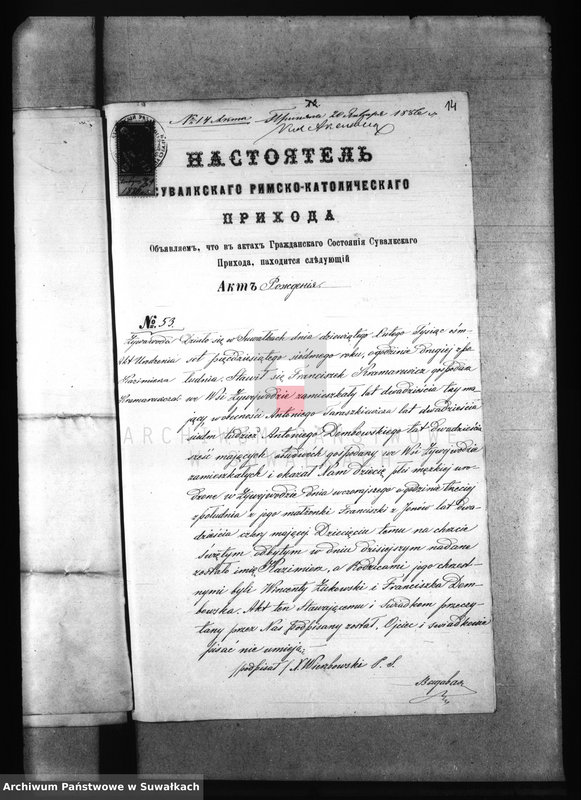 14
№ 14 Акта Принята 20 Января 1886 г.
НАСТОЯТЕЛЬ
СУВАЛКСКАГО РИМСКО-КАТОЛИЧЕСКАГО
ПРИХОДА
Объявляемъ, что въ актахъ Гражданскаго Состоянія Сувалкскаго
Прихода, находится слѣдующій
Актъ Рожденія
№ 53.
Żywawoda Działo się w Suwałkach dnia dziewiątego Lutego Tysiąc ośm-
Akt Urodzenia set pięćdziesiątego siódmego roku, o godzinie drugiej z po-
Kazimierza łudnia. Stawił się Franciszek gospodarz
we Wsi Żywejwodzie zamieszkały lat dwadzieścia trzy ma-
jący w obecności Antoniego Saruszkiewicza lat dwadzieścia
siedm tudzież Antoniego Dombowskiego lat dwadzieścia
sześć mających obudwóch gospodarzy we Wsi Żywejwodzie
zamieszkałych i okazał Nam dziecię płci męzkiej uro-
dzone w Żywejwodzie dnia wczorajszego o godzinie trzeciej
z południa z jego małżonki Franciszki z lat dwa-
dzieścia cztery mającej Dziecięciu temu na chrzcie
świętym odbytym w dniu dzisiejszym nadane
zostało imię Kazimierz, a Rodzicami jego chrzest-
nymi byli Wincenty Żukowski i Franciszka Dom-
bowska. Akt ten Stawającemu i Świadkom przeczy-
tany przez Nas podpisany został. Ojciec i świadkowie
pisać nie umieją
/podpisał/ X. Wierzbowski P. S.
ARCHIWUM PAŃSTWOWE
W SUWAŁKACH
Archiwum Państwowe w Suwałkach